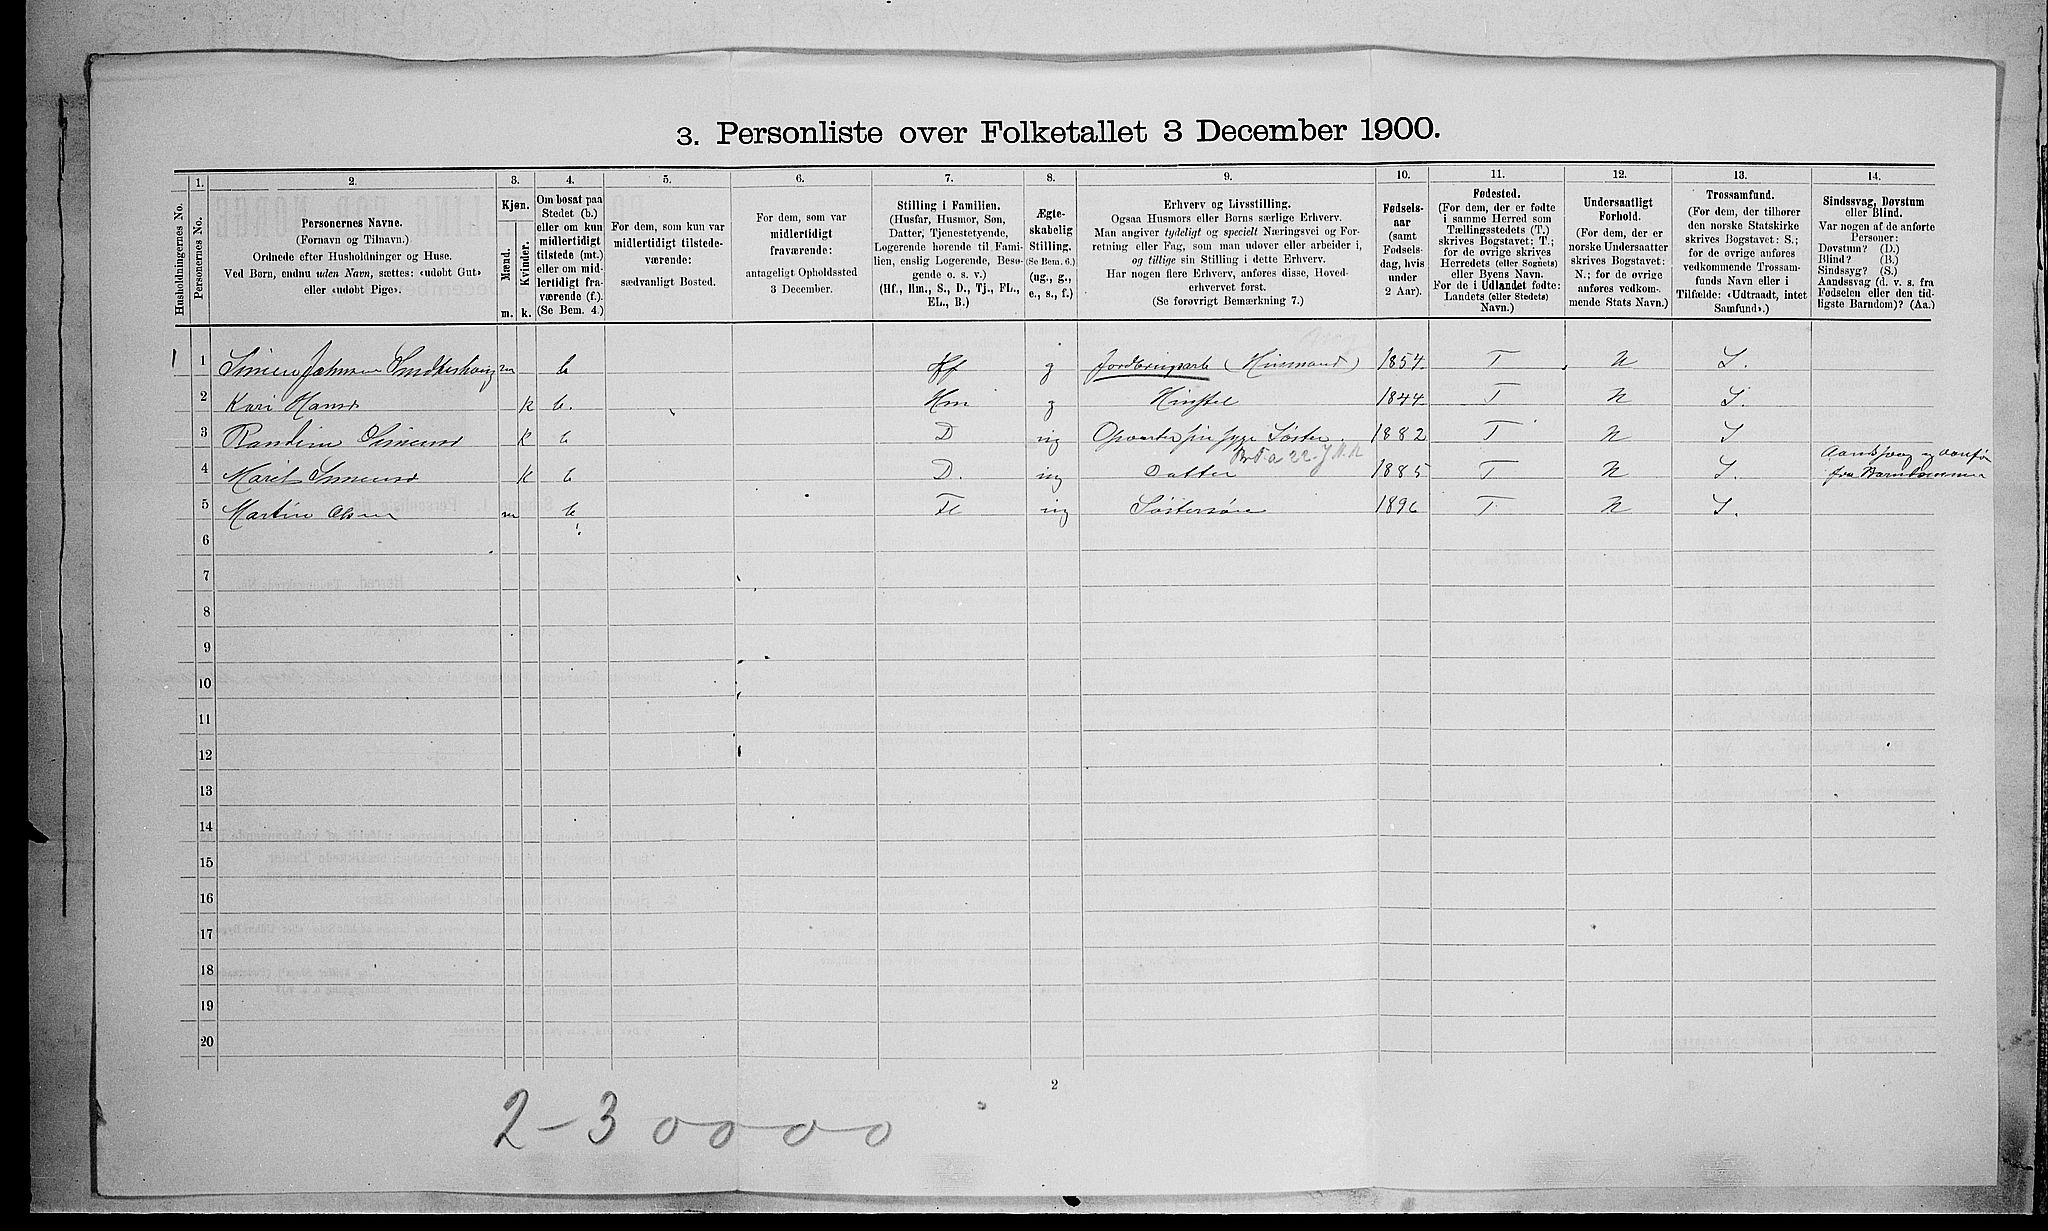 3. Personliste over Folketallet 3 December 1900.
1. 2. 3. 4. 5. 6. 7. 8. 9. 10. 11. 12. 13. 14.
Husholdningernes No.
Personernes No.
Personernes Navne.
(Fornavn og Tilnavn.)
Ordnede efter Husholdninger og Huse.
Ved Børn, endnu uden Navn, sættes: «udøbt Gut»
eller «udøbt Pige».
Kjøn.
Mænd.
Kvinder.
m. k.
Om bosat paa
Stedet (b.)
eller om kun
midlertidigt
tilstede (mt.)
eller om mid-
lertidigt fra-
værende (f.)
(Se Bem. 4.)
For dem, som kun var
midlertidigt tilstede-
værende:
sædvanligt Bosted.
For dem, som var
midlertidigt
fraværende:
antageligt Opholdssted
3 December.
Stilling i Familien.
(Husfar, Husmor, Søn,
Datter, Tjenestetyende,
Logerende hørende til Fami-
lien, enslig Logerende, Besø-
gende o. s. v.)
(Hf., Hm., S., D., Tj., FL.,
EL., B.)
Ægte-
skabelig
Stilling.
(Se Bem. 6.)
(ug., g.,
e., s., f.)
Erhverv og Livsstilling.
Ogsaa Husmors eller Børns særlige Erhverv.
Man angiver tydeligt og specielt Næringsvei og For-
retning eller Fag, som man udøver eller arbeider i,
og tillige sin Stilling i dette Erhverv.
Har nogen flere Erhverv, anføres disse, Hoved-
erhvervet først.
(Se forøvrigt Bemærkning 7.)
Fødsels-
aar
(samt
Fødsels-
dag, hvis
under
2 Aar).
Fødested.
(For dem, der er fødte
i samme Herred som
Tællingsstedets (T.)
skrives Bogstavet: T.;
for de øvrige skrives
Herredets (eller Sognets)
eller Byens Navn.
For de i Udlandet fødte:
Landets (eller Stedets)
Navn.)
Undersaatligt
Forhold.
(For dem, der er
norske Undersaatter
skrives Bogstavet:
N.; for de øvrige
anføres vedkom-
mende Stats Navn.)
Trossamfund.
(For dem, der tilhører
den norske Statskirke
skrives Bogstavet: S.;
for de øvrige anføres
vedkommende Trossam-
funds Navn eller i
Tilfælde: «Udtraadt, intet
Samfund».)
Sindssvag, Døvstum
eller Blind.
Var nogen af de anførte
Personer:
Døvstum? (D.)
Blind? (B.)
Sindssyg? (S.)
Aandssvag (d. v. s. fra
Fødselen eller den tid-
ligste Barndom)? (Aa.)
1 1 Simen Johnsen m b Hf g Jordbrugsarb (Husmand) 1854. T N S.
2 Kari Hansd k b. Hm g 1844 T N S.
3 Randine Simensd k b D ug Opvarter sin syge Søster. 1882 T N S
4 Marit Simensd k b D. ug Datter 1885 T N S. Aandssvag og vanfør
fra Barndommen
5 Martin Olsen m b Fl ug Søstersøn 1896 T N S.
6
7
8
9
10
11
12
13
14
15
16
17
18
19
20
2
2-3 0 0 0 0